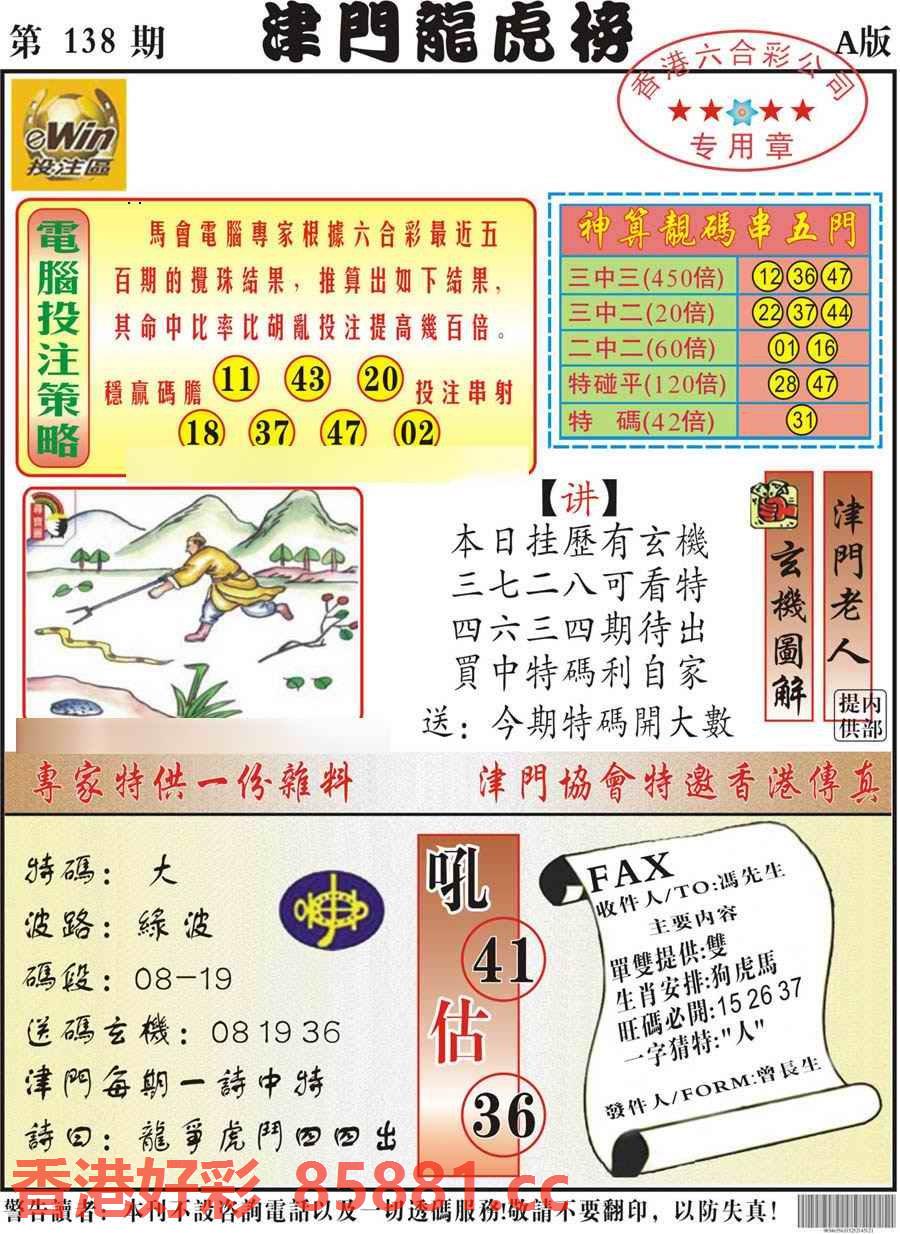 第 138 期
津門龍虎榜
A版
香港六合彩公司
专用章
eWin
投注區
電腦投注策略
馬會電腦專家根據六合彩最近五
百期的攪珠結果，推算出如下結果，
其命中比率比胡亂投注提高幾百倍。
穩贏碼膽 11 43 20 投注串射
18 37 47 02
神算靚碼串五門
三中三(450倍) 12 36 47
三中二(20倍) 22 37 44
二中二(60倍) 01 16
特碰平(120倍) 28 47
特 碼(42倍) 31
尋寶圖
【讲】
本日挂歷有玄機
三七二八可看特
四六三四期待出
買中特碼利自家
送：今期特碼開大數
玄機圖解
津門老人
内部提供
專家特供一份雜料
津門協會特邀香港傳真
特碼：大
波路：綠波
碼段：08-19
送碼玄機：08 19 36
津門每期一詩中特
詩曰：龍爭虎鬥四四出
吼
41
估
36
FAX
收件人/TO:馮先生
主要内容
單雙提供:雙
生肖安排:狗虎馬
旺碼必開:15 26 37
一字猜特:"人"
發件人/FORM:曾長生
香港好彩 85881.cc
警告讀者：本刊不設咨詢電話以及一切透碼服務!敬請不要翻印，以防失真!